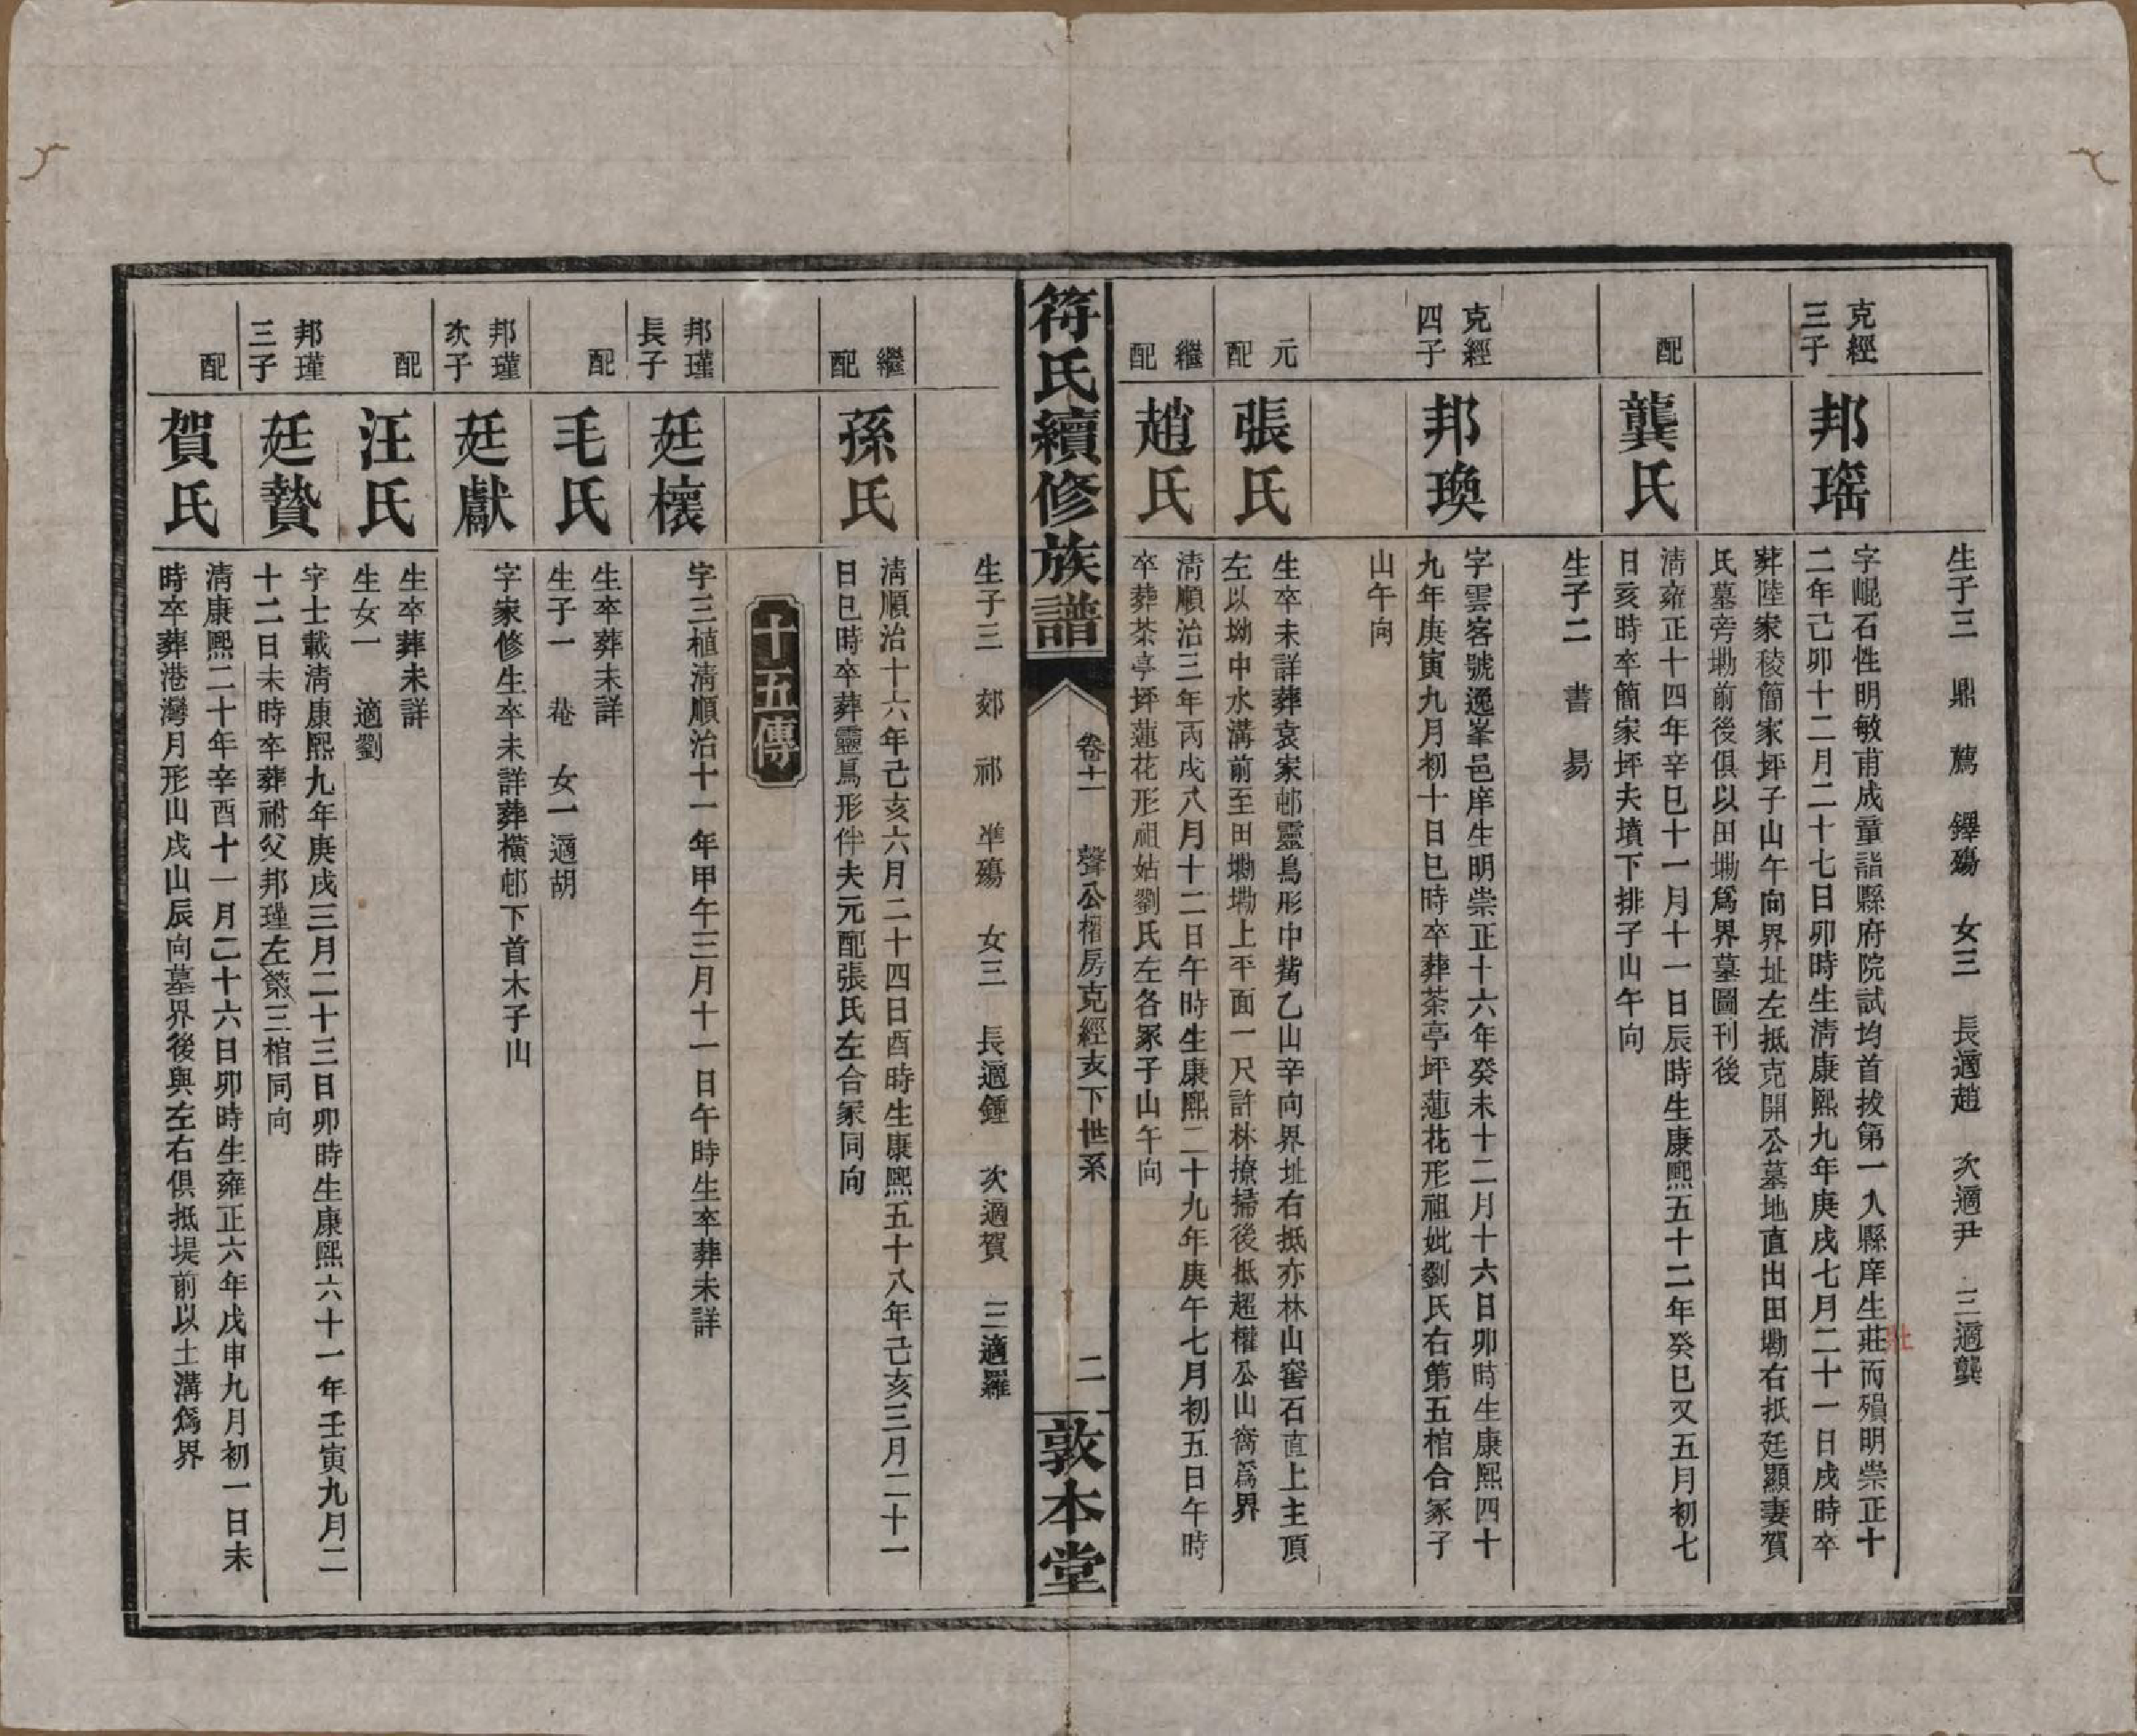 生子三 鼎 薦 鐸殤 女三 長適趙 次適尹 三適龔
克經
三子
邦瑶
字崐石性明敏甫成童詣縣府院試均首拔第一入縣庠生莊而殞明崇正十
壯
二年己卯十二月二十七日卯時生清康熙九年庚戌七月二十一日戌時卒
葬陸家稜簡家坪子山午向界址左抵克開公墓地直出田墈右抵廷顯妻賀
氏墓旁墈前後俱以田墈爲界墓圖刊後
配
龔氏
清雍正十四年辛巳十一月十一日辰時生康熙五十二年癸巳又五月初七
日亥時卒簡家坪夫墳下排子山午向
生子二 書 易
克經
四子
邦瑍
字雲客號逸峯邑庠生明崇正十六年癸未十二月十六日卯時生康熙四十
九年庚寅九月初十日巳時卒葬茶亭坪蓮花形祖妣劉氏右第五棺合冢子
山午向
元
配
張氏
生卒未詳葬袁家邨靈鳥形中觜乙山辛向界址右抵亦林山窖石直上主頂
左以坳中水溝前至田墈墈上平面一尺許林撩掃後抵超權公山脊爲界
繼
配
趙氏
清順治三年丙戌八月十二日午時生康熙二十九年庚午七月初五日午時
卒葬茶亭坪蓮花形祖姑劉氏左各冢子山午向
符氏續修族譜
卷十一 聲公楷房克經支下世系
二
敦本堂
生子三 郊 祁 準殤 女三 長適鍾 次適賀 三適羅
繼
配
孫氏
清順治十六年己亥六月二十四日酉時生康熙五十八年己亥三月二十一
日巳時卒葬靈鳥形伴夫元配張氏左合冢同向
十五傳
邦瑾
長子
廷櫰
字三植清順治十一年甲午三月十一日午時生卒葬未詳
配
毛氏
生卒葬未詳
生子一 菴 女一適胡
邦瑾
次子
廷獻
字家修生卒未詳葬橫邨下首木子山
配
汪氏
生卒葬未詳
生女一 適劉
邦瑾
三子
廷贊
字士載清康熙九年庚戌三月二十三日卯時生康熙六十一年壬寅九月二
十二日未時卒葬祔父邦瑾左第三棺同向
配
賀氏
清康熙二十年辛酉十一月二十六日卯時生雍正六年戊申九月初一日未
時卒葬港灣月形山戌山辰向墓界後與左右俱抵堤前以土溝爲界